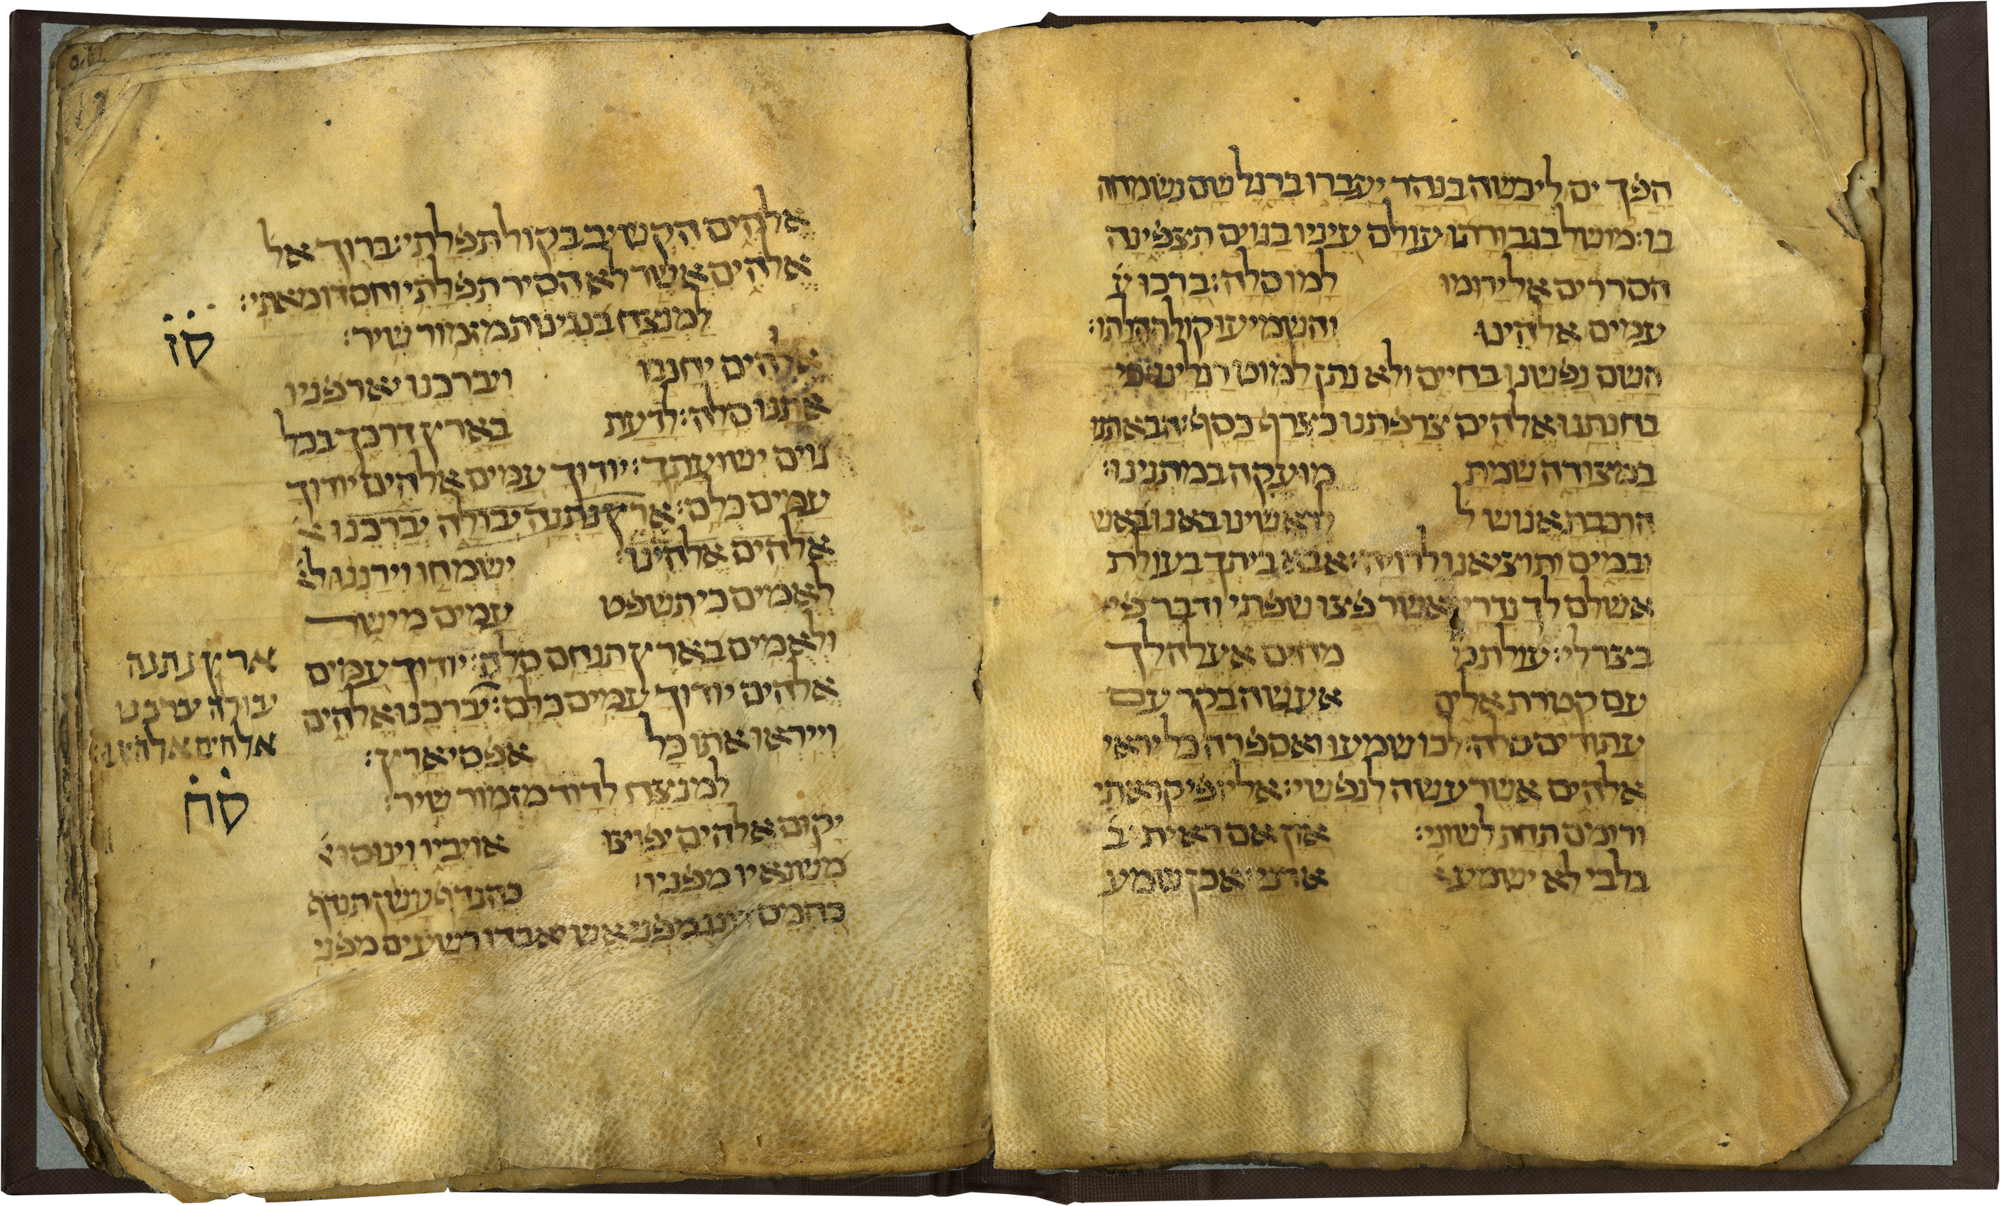 הפך ים ליבשה בנהר יעברו ברגל שם נשמחה
בו׃ מושל בגבורתו עולם עיניו בגוים תצפינה
הסררים אל ירומו למו סלה׃ ברכו ע
עמים אלהינו והשמיעו קול תהלתו׃
השם נפשנו בחיים ולא נתן למוט רגלינו׃ כי
בחנתנו אלהים צרפתנו כצרף כסף׃ הבאתנו
במצודה שמת מועקה במתנינו׃
הרכבת אנוש ל לראשינו באנו באש
ובמים ותוציאנו לרויה׃ אבא ביתך בעולת
אשלם לך נדרי אשר פצו שפתי ודבר פי
בצר לי׃ עולת מ מחים אעלה לך
עם קטרת אלים אעשה בקר עם
עתודים סלה׃ לכו שמעו ואספרה כל יראי
אלהים אשר עשה לנפשי׃ אליו פי קראתי
ורומם תחת לשוני׃ און אם ראיתי ב
בלבי לא ישמע אדני׃ אכן שמע
אלהים הקשיב בקול תפלתי׃ ברוך אל
אלהים אשר לא הסיר תפלתי וחסדו מאתי׃
למנצח בנגינות מזמור שיר׃
סז
אלהים יחננו ויברכנו יאר פניו
אתנו סלה׃ לדעת בארץ דרכך בכל
גוים ישועתך׃ יודוך עמים אלהים יודוך
עמים כלם׃ ארץ נתנה יבולה יברכנו א
אלהים אלהינו׃ ישמחו וירננו ל
לאמים כי תשפט עמים מישר
ולאמים בארץ תנחם סלה׃ יודוך עמים
אלהים יודוך עמים כלם׃ יברכנו אלהים
וייראו אתו כל אפסי ארץ׃
ארץ נתנה
יבולה יברכנו
אלהים אלהינו
למנצח לדוד מזמור שיר׃
סח
יקום אלהים יפוצו אויביו וינוסו
משנאיו מפניו׃ כהנדף עשן תנדף
כהמס דונג מפני אש יאבדו רשעים מפני